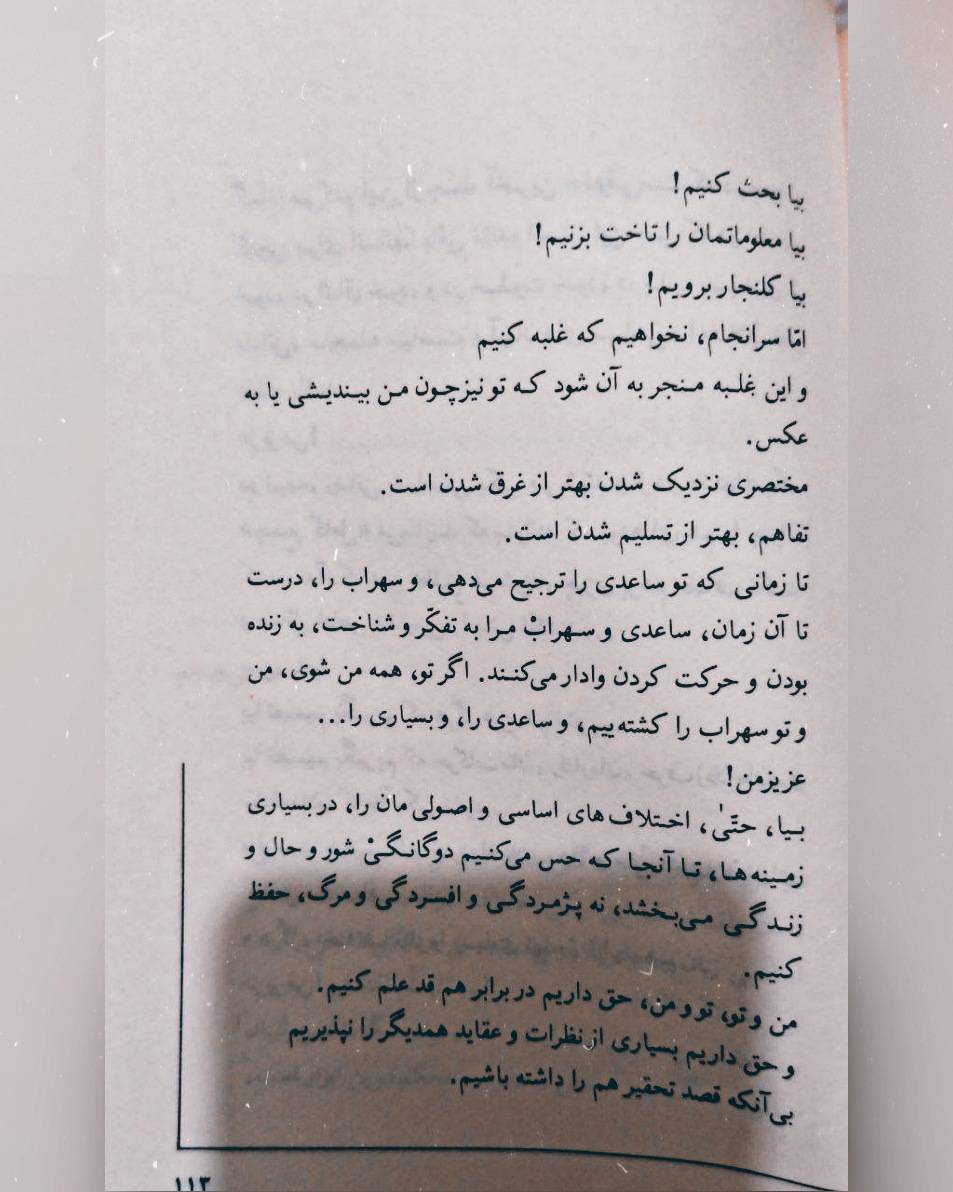 بیا بحث کنیم!
بیا معلوماتمان را تاخت بزنیم!
بیا کلنجار برویم!
امّا سرانجام، نخواهیم که غلبه کنیم
و این غلبه منجر به آن شود که تو نیز چون من بیندیشی یا به
عکس.
مختصری نزدیک شدن بهتر از غرق شدن است.
تفاهم، بهتر از تسلیم شدن است.
تا زمانی که تو ساعدی را ترجیح می‌دهی، و سهراب را، درست
تا آن زمان، ساعدی و سهرابْ مرا به تفکّر و شناخت، به زنده
بودن و حرکت کردن وادار می‌کنند. اگر تو، همه من شوی، من
و تو سهراب را کشته‌ییم، و ساعدی را، و بسیاری را...
عزیز من!
بیا، حتّیٰ، اختلاف‌های اساسی و اصولی مان را، در بسیاری
زمینه‌ها، تا آنجا که حس می‌کنیم دوگانگیْ شور و حال و
زندگی می‌بخشد، نه پژمردگی و افسردگی و مرگ، حفظ
کنیم.
من و تو، تو و من، حق داریم در برابر هم قد علم کنیم.
و حق داریم بسیاری از نظرات و عقاید همدیگر را نپذیریم
بی‌آنکه قصد تحقیر هم را داشته باشیم.
۱۱۳